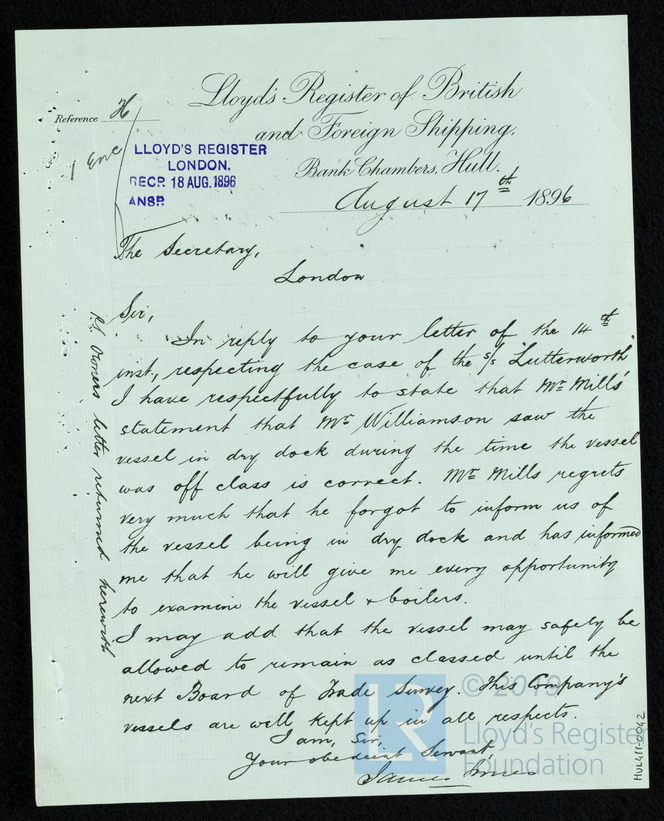 Lloyd's Register of British
and Foreign Shipping.
Bank Chambers, Hull.
Reference H
1 Enc
LLOYD'S REGISTER
LONDON.
RECP. 18 AUG. 1896
ANSP.
August 17th 1896
The Secretary,
London
Sir,
In reply to your letter of the 14th
inst., respecting the case of the s/s "Lutterworth"
I have respectfully to state that Mr Mills'
statement that Mr Williamson saw the
vessel in dry dock during the time the vessel
was off class is correct. Mr Mills regrets
very much that he forgot to inform us of
the vessel being in dry dock and has informed
me that he will give me every opportunity
to examine the vessel & boilers.
I may add that the vessel may safely be
allowed to remain as classed until the
next Board of Trade Survey. This Company's
vessels are well kept up in all respects.
I am, Sir,
Your obedient Servant,
James
Owners letter returned herewith
© 2019
Lloyd's Register
Foundation
LR
HUL411-0042